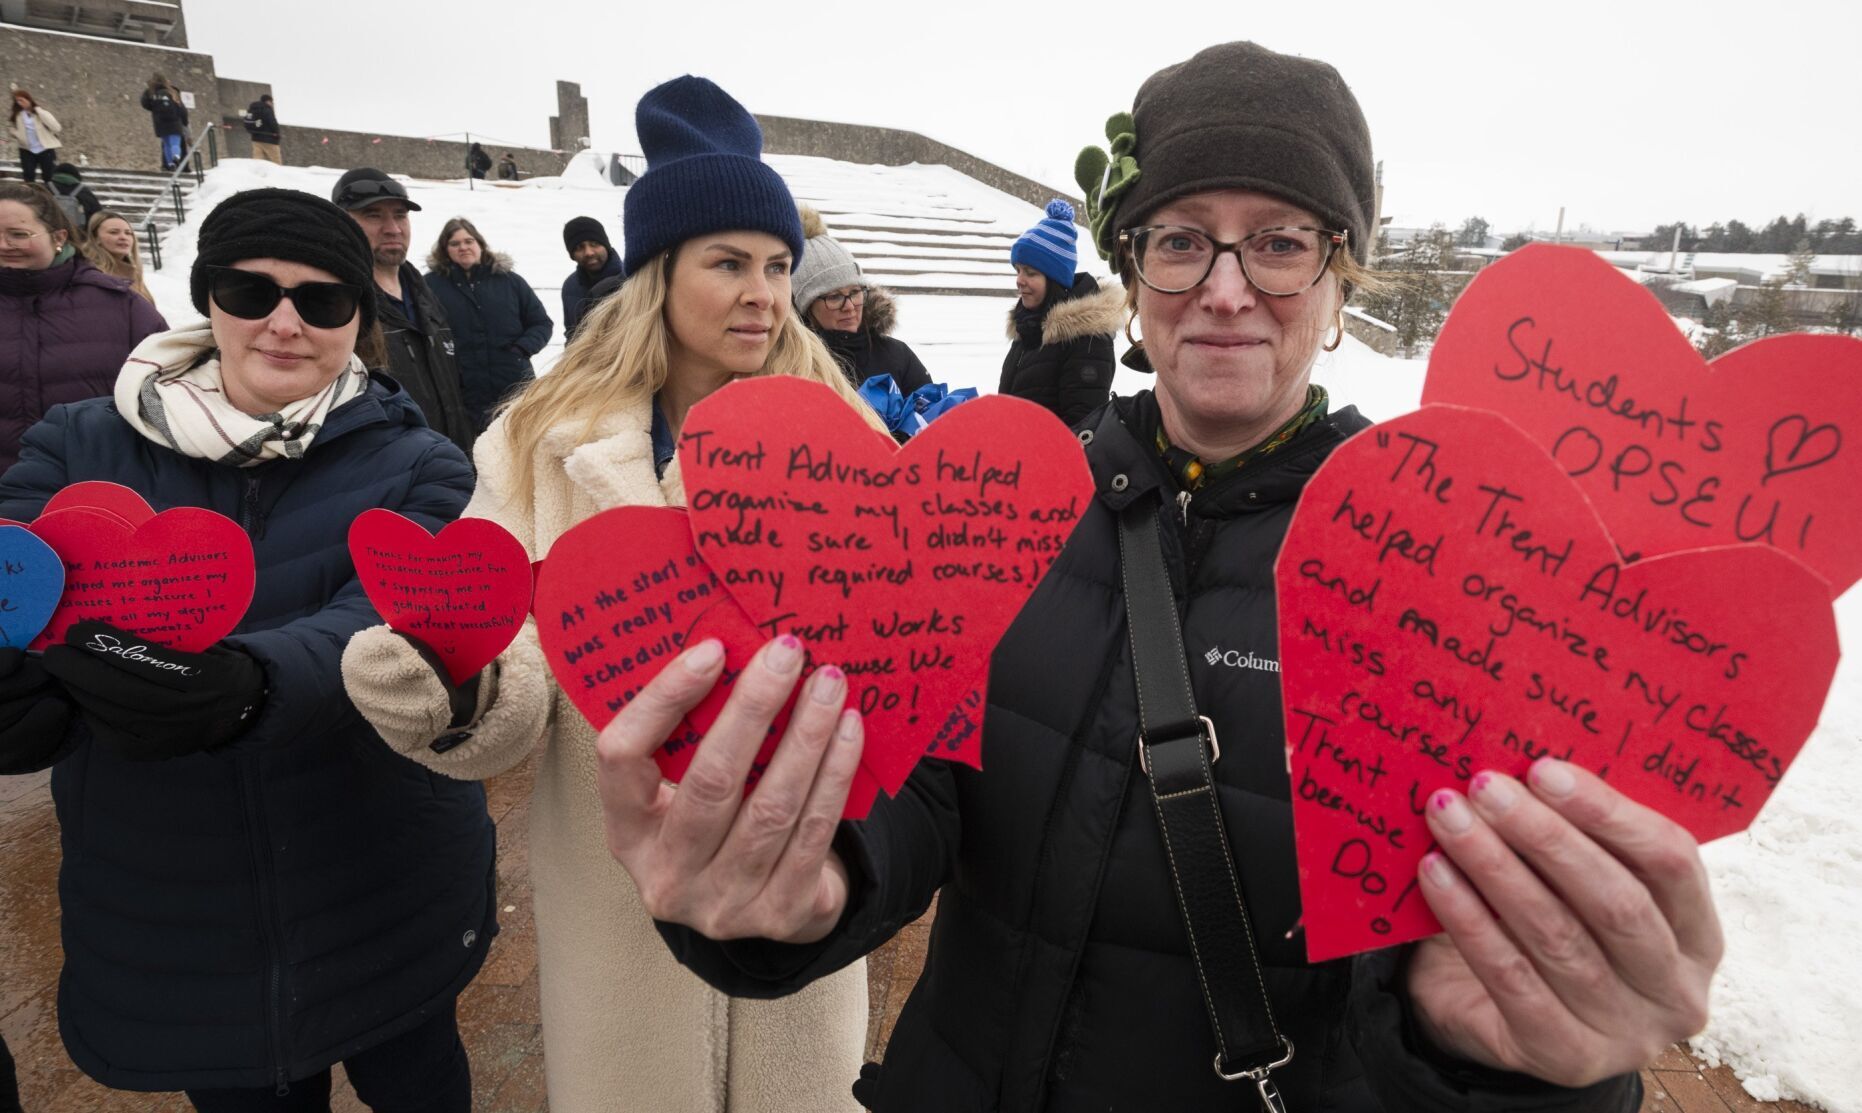 he Academic Advisors
helped me organize my
classes to ensure I
have all my degree
Salomon
Thanks for making my
residence experience fun
& supporting me in
getting situated
at Trent successfully!
At the start o
was really con
schedule
wa
me
"Trent Advisors helped
organize my classes and
made sure I didn't miss
any required courses!"
Trent Works
Because We
Do!
end
Columb
Students
OPSEU!
"The Trent Advisors
helped organize my classes
and made sure I didn't
miss any need
courses
Trent W
because
Do!